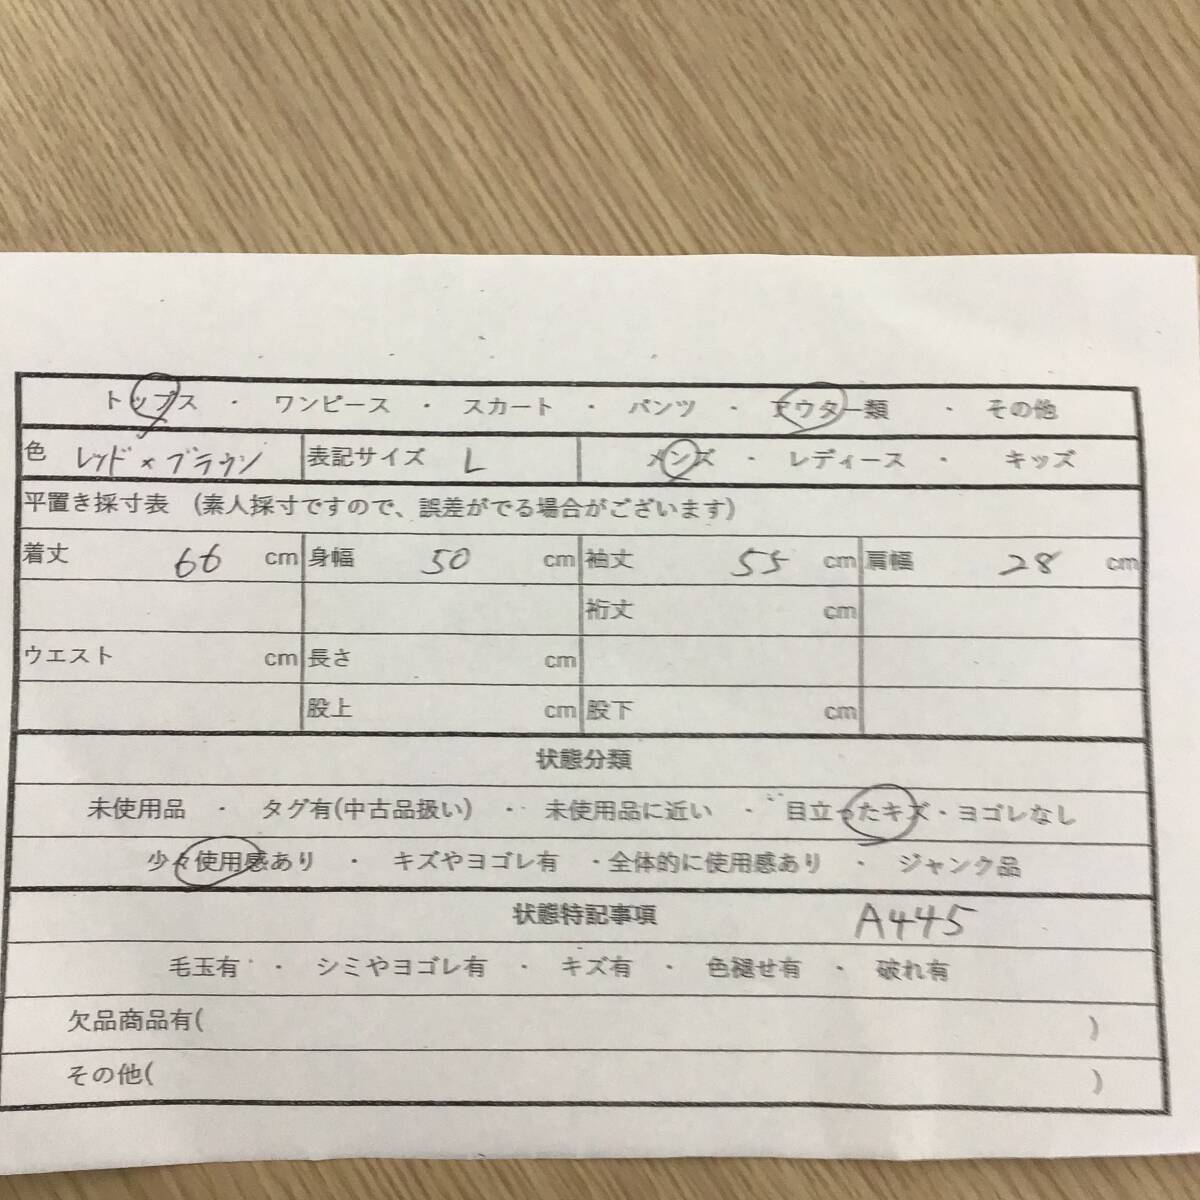 トップス ・ ワンピース ・ スカート ・ パンツ ・ アウター類 ・ その他
色 レッド×ブラウン 表記サイズ L メンズ ・ レディース ・ キッズ
平置き採寸表 (素人採寸ですので、誤差がでる場合がございます)
着丈 66 cm 身幅 50 cm 袖丈 55 cm 肩幅 28 cm
裄丈 cm
ウエスト cm 長さ cm
股上 cm 股下 cm
状態分類
未使用品 ・ タグ有(中古品扱い) ・ 未使用品に近い ・ 目立ったキズ・ヨゴレなし
少々使用感あり ・ キズやヨゴレ有 ・全体的に使用感あり ・ ジャンク品
状態特記事項 A445
毛玉有 ・ シミやヨゴレ有 ・ キズ有 ・ 色褪せ有 ・ 破れ有
欠品商品有( )
その他( )